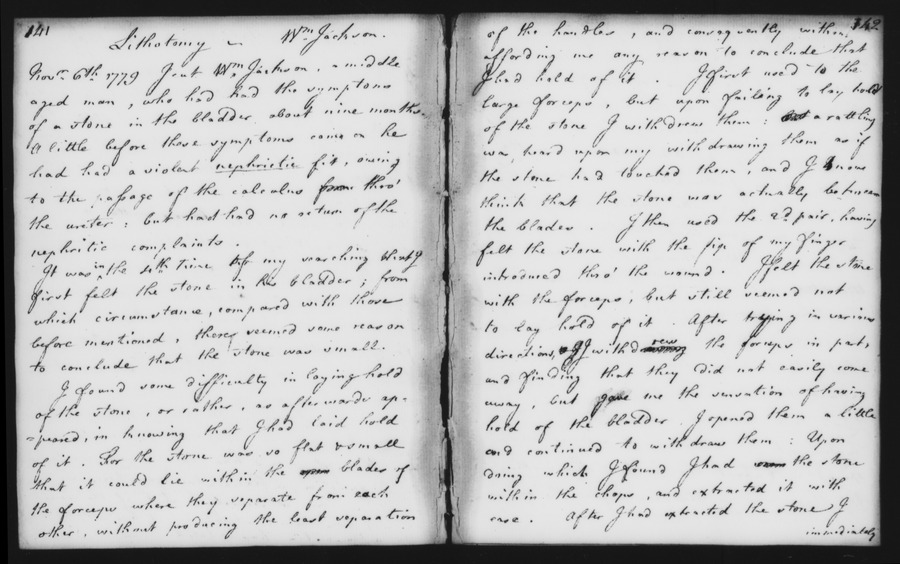 141
Lithotomy — Wm Jackson.
Novr. 6th 1779 I cut Wm. Jackson, a middle
aged man, who had had the symptoms
of a stone in the bladder about nine months.
A little before those symptoms came on he
had had a violent nephritic fit, owing
to the passage of the calculus from thro'
the ureter: but had had no return of the
nephritic complaints.
It was in the 4th time of my searching that I
first felt the stone in his bladder; from
which circumstance, compared with those
before mentioned, there seemed some reason
to conclude that the stone was small.
I found some difficulty in laying hold
of the stone, or rather, as afterwards ap-
=peared, in knowing that I had laid hold
of it. For the stone was so flat & small
that it could lie within the open blades of
the forceps where they separate from each
other, without producing the least separation
142
of the handles, and consequently without
affording me any reason to conclude that
I had hold of it. I first used to the
large forceps, but upon failing to lay hold
of the stone I withdrew them: but a rattling
was heard upon my withdrawing them as if
the stone had touched them, and I now
think that the stone was actually between
the blades. I then used the 2d pair, having
felt the stone with the tip of my finger
introduced thro' the wound. I felt the stone
with the forceps, but still seemed not
to lay hold of it. After trying in various
directions, I withdrew the forceps in part,
and finding that they did not easily come
away, but gave me the sensation of having
hold of the bladder I opened them a little
and continued to withdraw them: Upon
doing which I found I had the stone
within the chops, and extracted it with
ease. After I had extracted the stone I
immediately